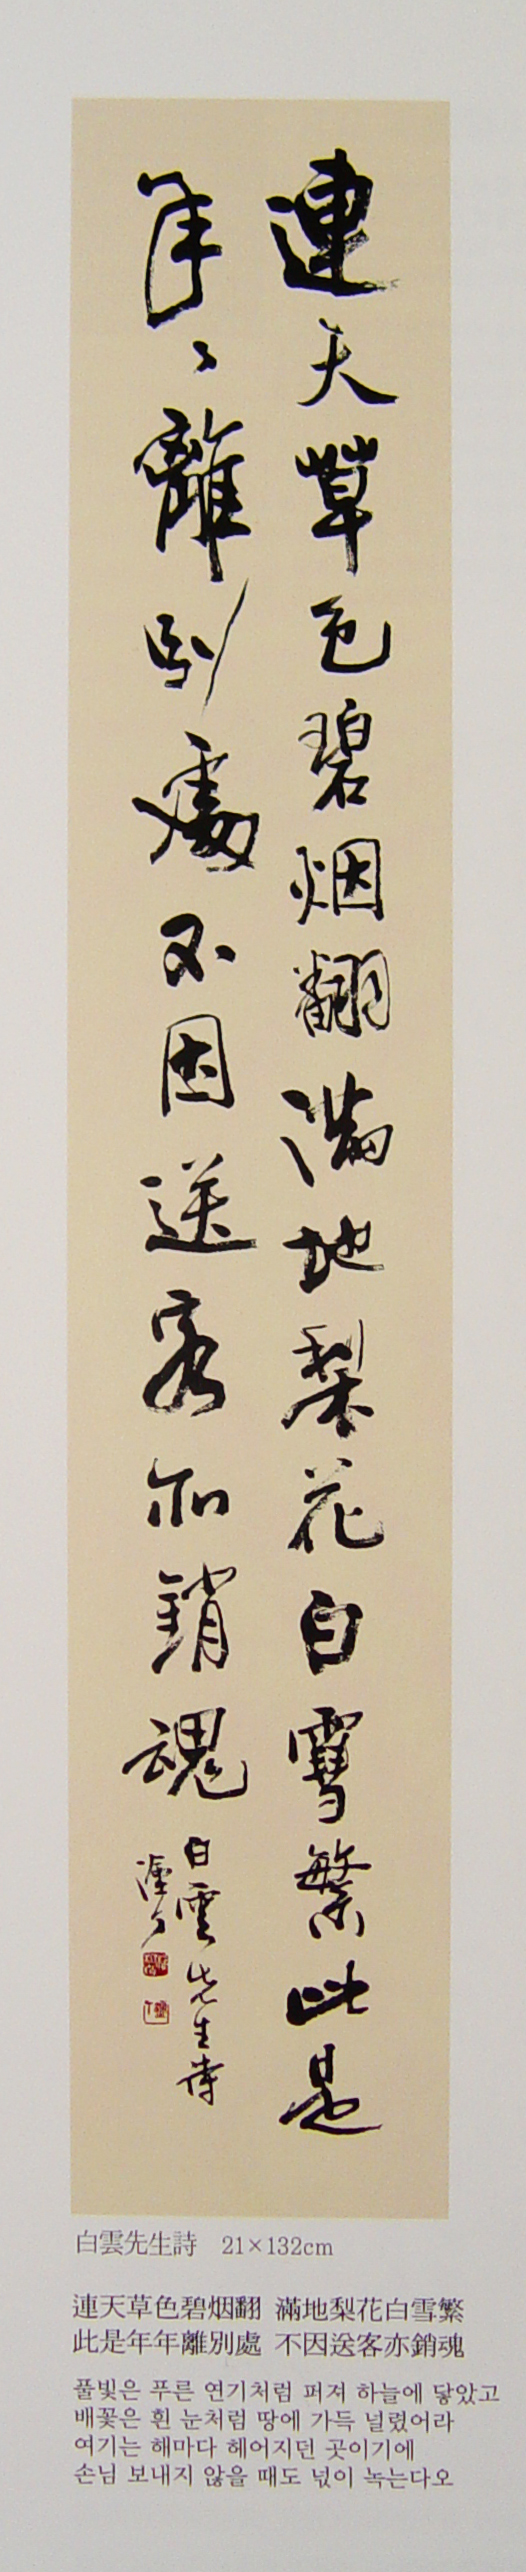 連天草色碧烟翻滿地梨花白雪繁此是
年々離別處不因送客亦銷魂
白雲先生詩
白雲先生詩 21×132cm
連天草色碧烟翻 滿地梨花白雪繁
此是年年離別處 不因送客亦銷魂
풀빛은 푸른 연기처럼 퍼져 하늘에 닿았고
배꽃은 흰 눈처럼 땅에 가득 널렸어라
여기는 해마다 헤어지던 곳이기에
손님 보내지 않을 때도 넋이 녹는다오